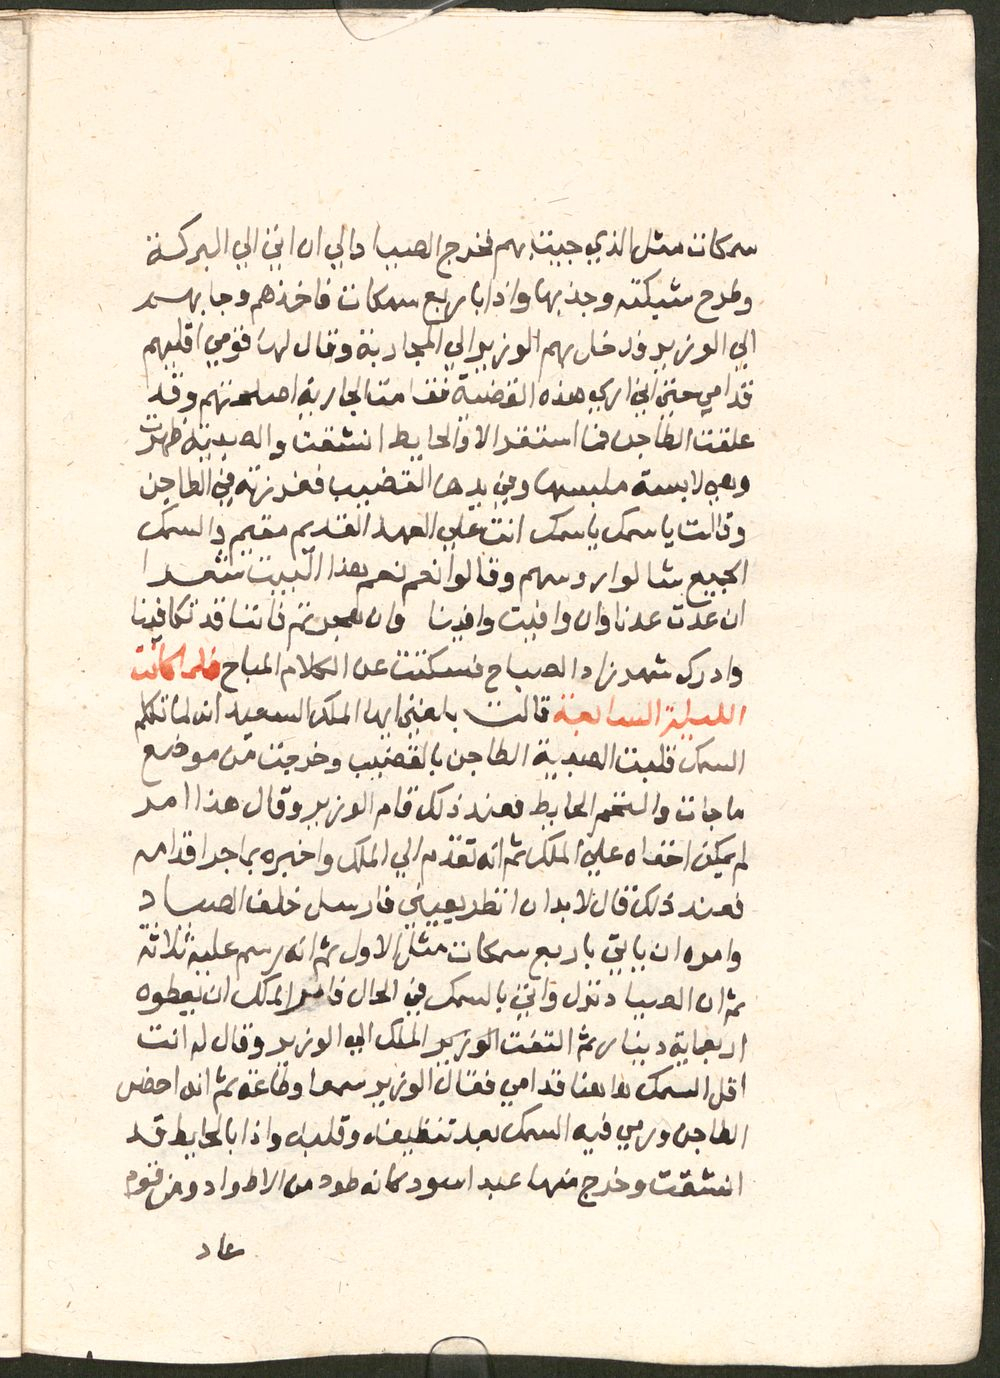 سمكات مثل الذي جيت بهم فخرج الصياد الي ان اتي الي البركة
وطرح شبكته وجذبها واذا باربع سمكات فاخذهم وجا بهم
الي الوزير فدخل بهم الوزير الي الجارية وقال لها قومي اقليهم
قدامي حتي اني اري هذه القضية فقامت الجارية اصلحتهم وقد
علقت الطاجن فما استقر الا والحايط انشقت والصبية ظهرت
وهي لابسة ملبسها وفي يدها القضيب فغرزته في الطاجن
وقالت يا سمك يا سمك انت علي العهد القديم مقيم والسمك
الجميع شالوا روسهم وقالوا نعم نعم بهذا البيت شعرا
ان عدت عدنا وان وافيت وافينا وان هجرتم فاننا قد تكافينا
وادرك شهرزاد الصباح فسكتت عن الكلام المباح فلما كانت
الليلة السابعة قالت بلغني ايها الملك السعيد انه لما تكلم
السمك قلبت الصبية الطاجن بالقضيب وخرجت من موضع
ما جات والتحم الحايط فعند ذلك قام الوزير وقال هذا امر
لم يمكن اخفاه علي الملك ثم انه تقدم الي الملك واخبره بما جرا قدامه
فعند ذلك قال لا بد ان انظر بعيني فارسل خلف الصياد
وامره ان ياتي باربع سمكات مثل الاول ثم انه رسم عليه ثلاثة
ثم ان الصياد نزل واتي بالسمك في الحال فامر الملك ان يعطوه
اربعماية دينار ثم التفت الوزير الملك الي الوزير وقال له انت
اقل السمك هاهنا قدامي فقال الوزير سمعا وطاعة ثم انه احضر
الطاجن ورمي فيه السمك بعد تنظيفه وقلبه واذا بالحايط قد
انشقت وخرج منها عبد اسود كانه طود من الاطواد ومن قوم
عاد